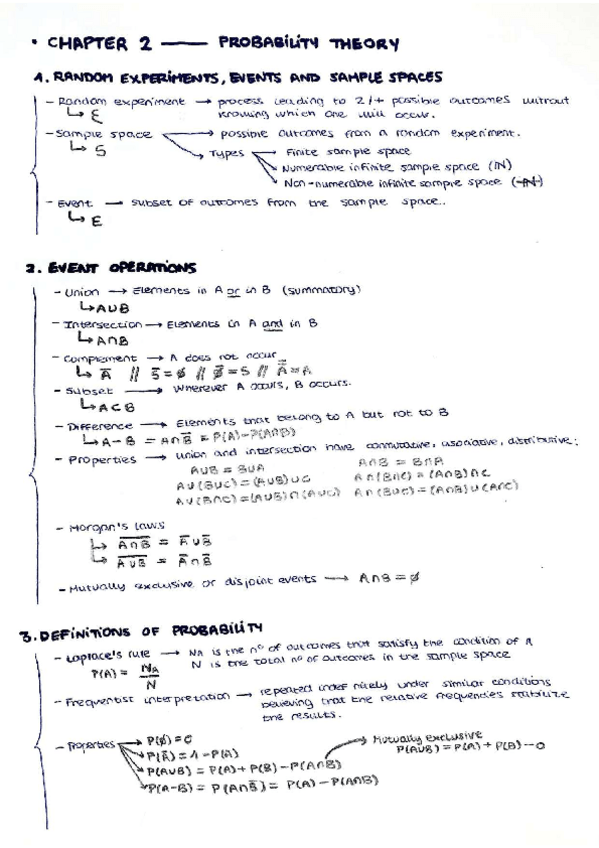 • CHAPTER 2 — PROBABILITY THEORY
1. RANDOM EXPERIMENTS, EVENTS AND SAMPLE SPACES
- Random experiment → process leading to 2/+ possible outcomes without
knowing which one will occur.
↳ E
- Sample space → possible outcomes from a random experiment.
↳ S
→ Types → Finite sample space
→ Numerable infinite sample space (IN)
→ Non-numerable infinite sample space (-IN-)
- Event → subset of outcomes from the sample space..
↳ E
2. EVENT OPERATIONS
- Union → Elements in A or in B (summatory)
↳ A∪B
- Intersection → Elements in A and in B
↳ A∩B
- Complement → A does not occur
↳ A̅ // S̅=∅ // ∅̅=S // A̿=A
- Subset → Wherever A occurs, B occurs.
↳ A⊂B
- Difference → Elements that belong to A but not to B
↳ A-B = A∩B̅ = P(A)-P(A∩B)
- Properties → union and intersection have commutative, associative, distributive:
A∪B = B∪A A∩B = B∩A
A∪(B∪C)=(A∪B)∪C A∩(B∩C)=(A∩B)∩C
A∪(B∩C)=(A∪B)∩(A∪C) A∩(B∪C)=(A∩B)∪(A∩C)
- Morgan's laws
↳ A̅∩̅B̅ = A̅∪B̅
↳ A̅∪̅B̅ = A̅∩B̅
- Mutually exclusive or disjoint events → A∩B=∅
3. DEFINITIONS OF PROBABILITY
- Laplace's rule → NA is the nº of outcomes that satisfy the condition of A
N is the total nº of outcomes in the sample space
P(A) = NA/N
- Frequentist interpretation → repeated indefinitely under similar conditions
believing that the relative frequencies stabilize
the results.
- Properties → P(∅)=0
→ P(A̅)=1-P(A)
→ P(A∪B) = P(A)+P(B)-P(A∩B) → Mutually exclusive
P(A∪B)=P(A)+P(B)-0
→ P(A-B) = P(A∩B̅) = P(A)-P(A∩B)